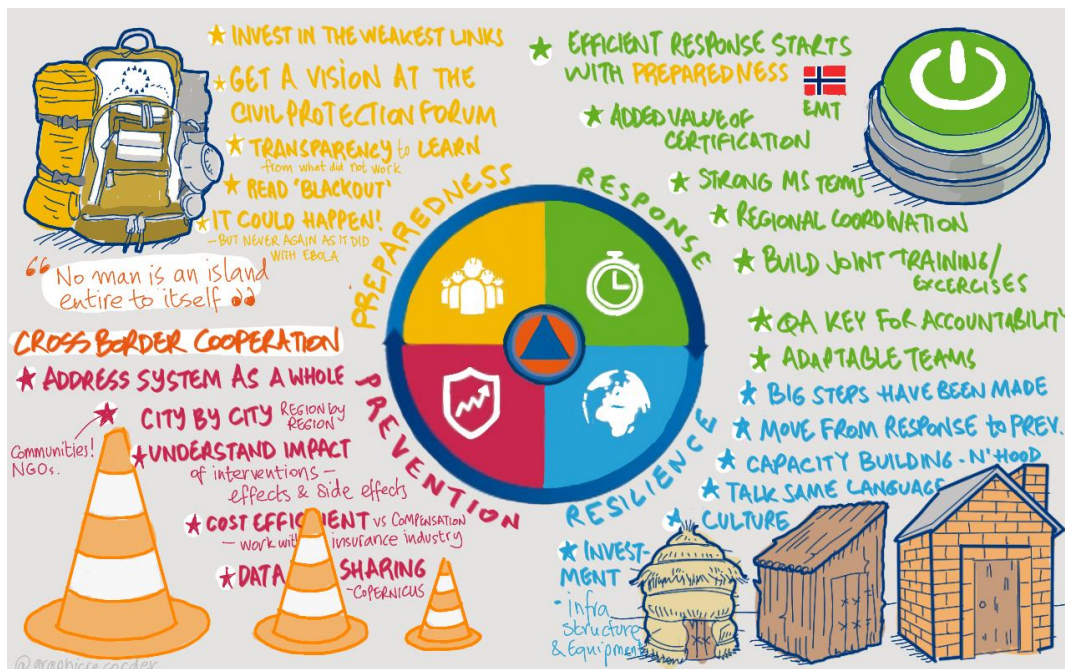 INVEST IN THE WEAKEST LINKS
GET A VISION AT THE
CIVIL PROTECTION FORUM
TRANSPARENCY to LEARN
from what did not work
READ 'BLACKOUT'
IT COULD HAPPEN!
- BUT NEVER AGAIN AS IT DID
WITH EBOLA
“ No man is an island
entire to itself ”
CROSS BORDER COOPERATION
ADDRESS SYSTEM AS A WHOLE
CITY BY CITY REGION by
REGION
Communities!
NGOs.
UNDERSTAND IMPACT
of interventions -
effects & side effects
COST EFFICIENT vs COMPENSATION
- work with insurance industry
DATA SHARING
- COPERNICUS
PREPAREDNESS
RESPONSE
PREVENTION
RESILIENCE
EFFICIENT RESPONSE STARTS
WITH PREPAREDNESS
EMT
ADDED VALUE OF
CERTIFICATION
STRONG MS TEAMS
REGIONAL COORDINATION
BUILD JOINT TRAINING/
EXCERCISES
QA KEY FOR ACCOUNTABILITY
ADAPTABLE TEAMS
BIG STEPS HAVE BEEN MADE
MOVE FROM RESPONSE to PREV.
CAPACITY BUILDING - N'HOOD
TALK SAME LANGUAGE
CULTURE
INVEST-
MENT
- infra
structure
& Equipment
@graphicrecorder